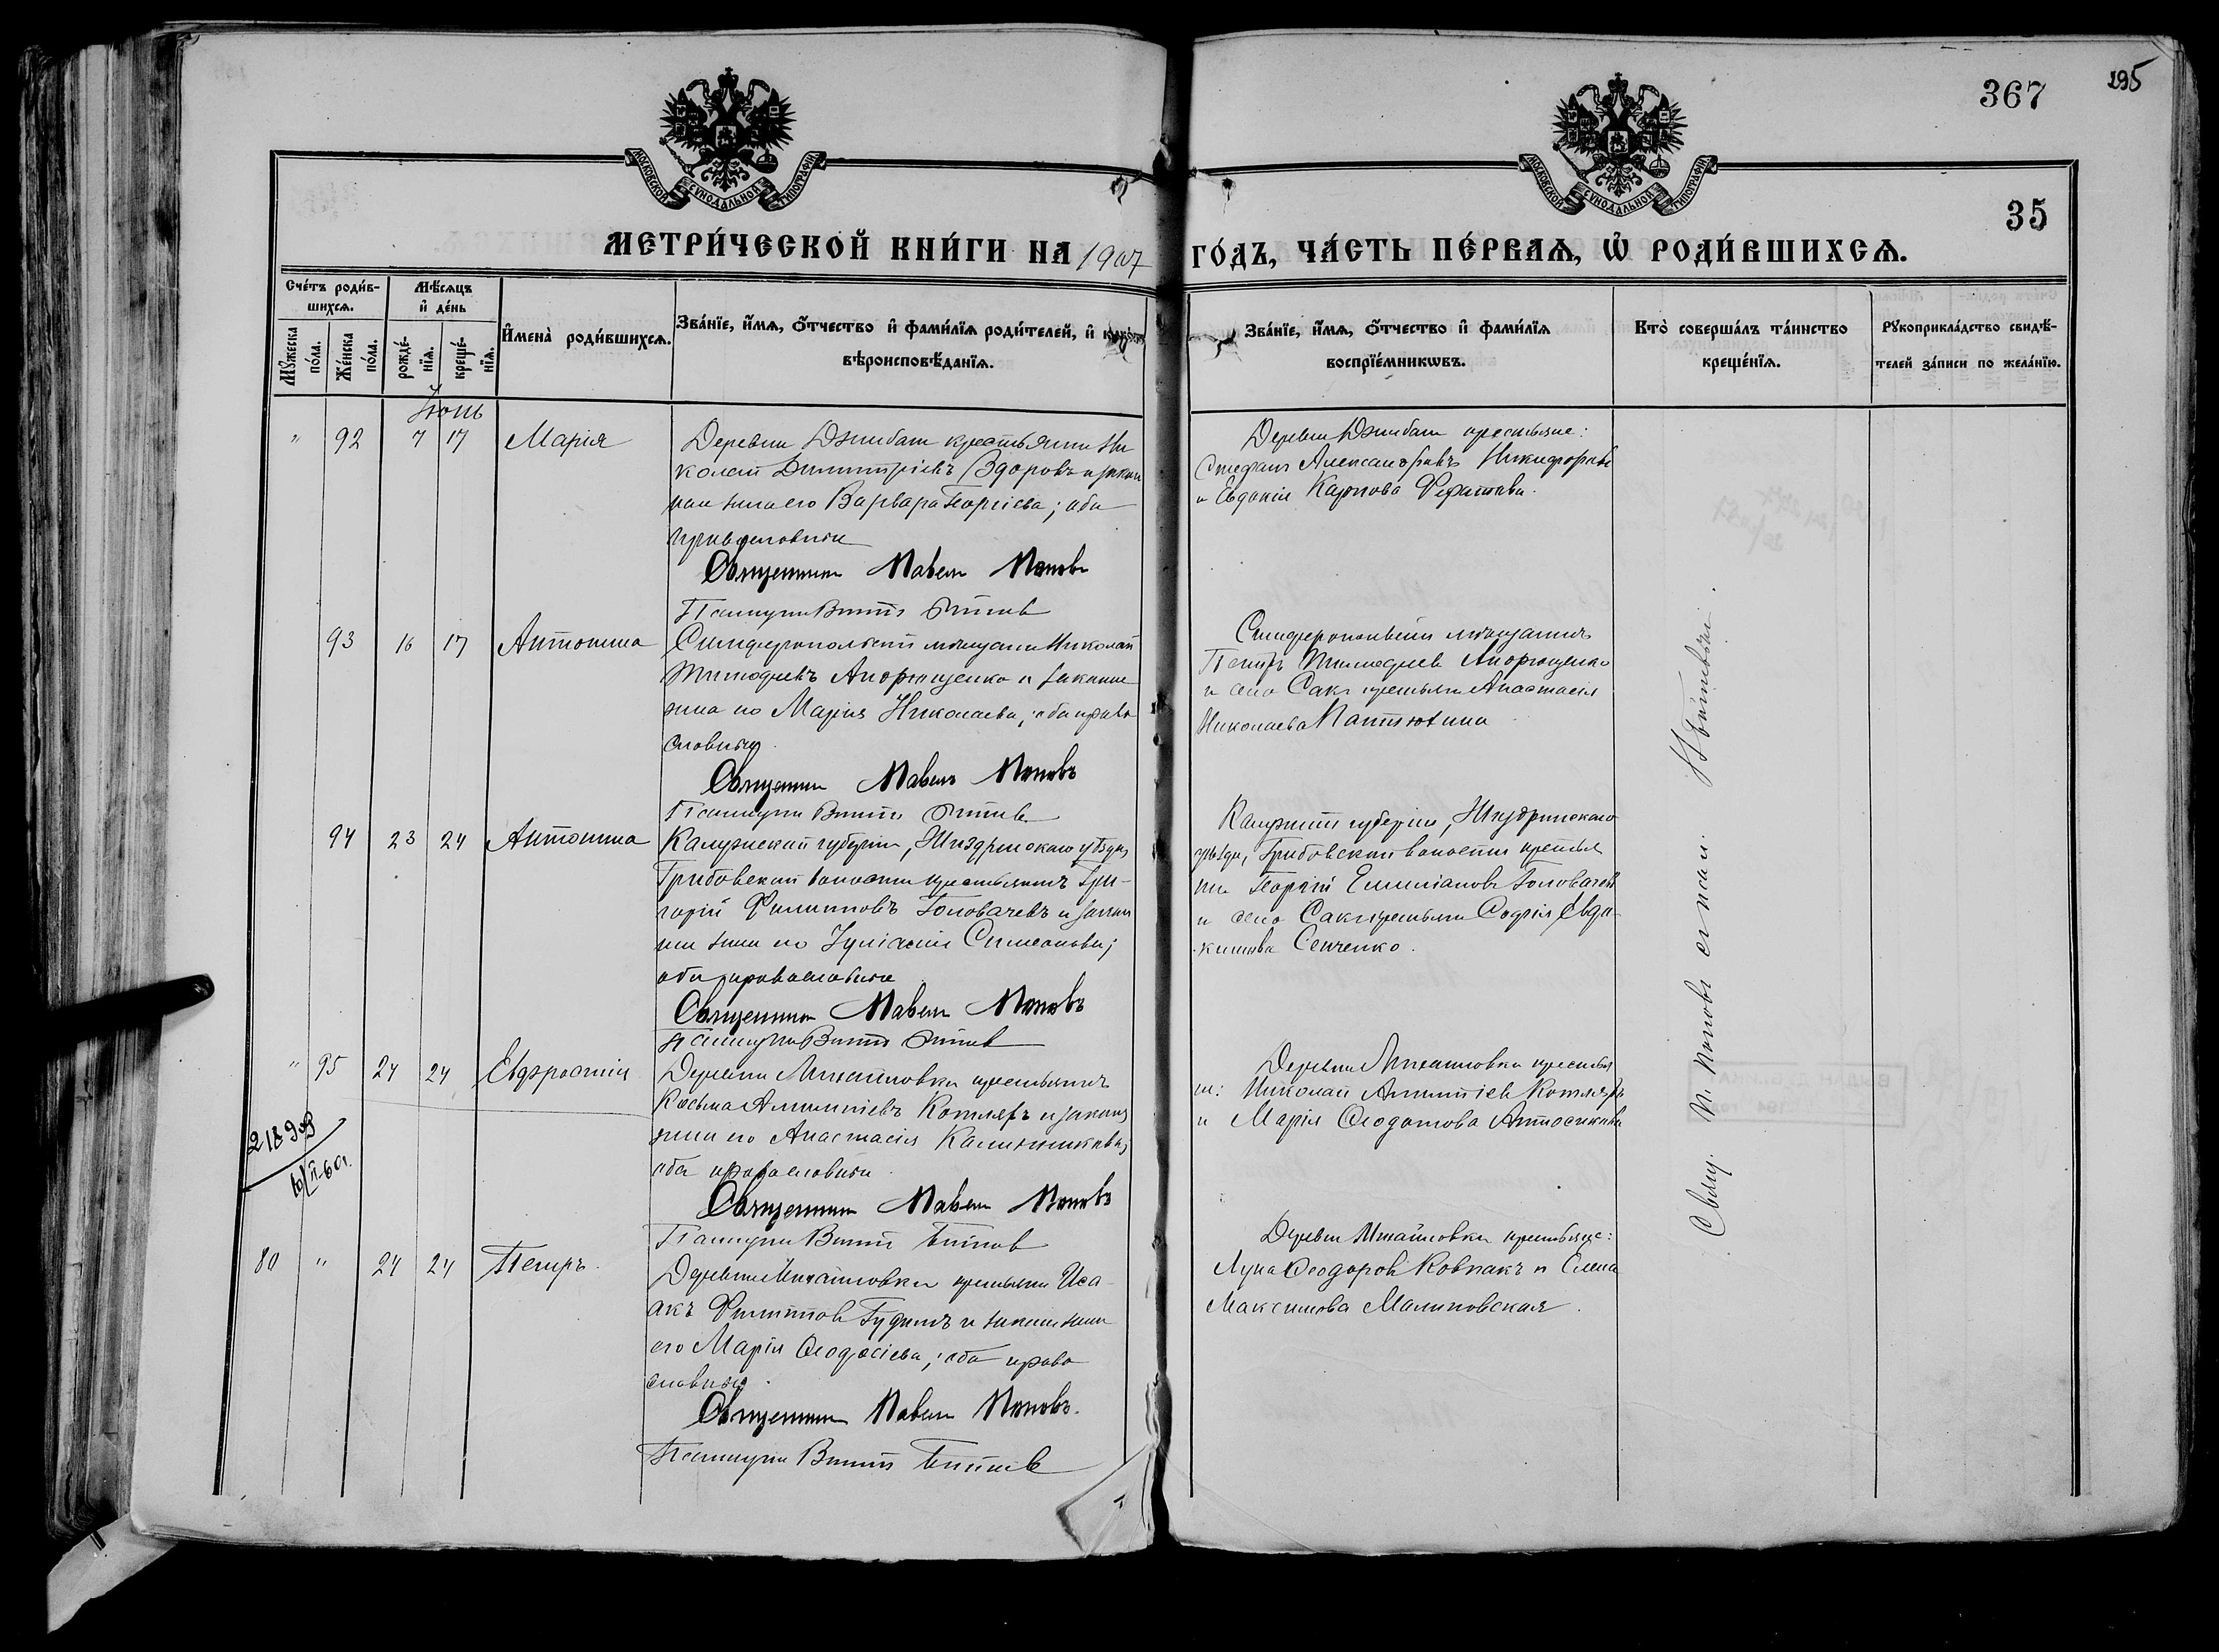 367
295
МОСКОВСКОЙ СѴНОДАЛЬНОЙ ТИПОГРАФІИ
МОСКОВСКОЙ СѴНОДАЛЬНОЙ ТИПОГРАФІИ
35
МЕТРИ́ЧЕСКОЙ КНИ́ГИ НА 1907 ГО́ДЪ, ЧА́СТЬ ПЕ́РВАѦ, Ѡ҆ РОДИ́ВШИХСѦ.
Сче́тъ роди́в-
шихсѧ.
Мꙋ́жеска
по́ла.
Же́нска
по́ла.
Мѣ́сѧцъ
и҆ де́нь
рожде́-
нїѧ.
креще́-
нїѧ.
И҆мена̀ роди́вшихсѧ.
Зва́нїе, и҆́мѧ, ѻ҆́тчество и҆ фами́лїѧ роди́телей, и҆
вѣроисповѣ́данїѧ.
Зва́нїе, и҆́мѧ, ѻ҆́тчество и҆ фами́лїѧ
воспрїе́мникѡвъ.
Кто̀ соверша́лъ та́инство
креще́нїѧ.
Рꙋкоприкла́дство свидѣ́-
телей за́писи по жела́нїю.
Іюнь
" 92 7 17 Марія
Деревни Джибаш крестьянин Ни
колай Димитріевъ Ѳдоровъ и закон
ная жена его Варвара Георгіева; оба
православные
Священник Павел Попов
Деревни Джабаш крестьяне:
Стефан Александровъ Никифоров
и Евдокія Карпова
93 16 17 Антонина
Симферопольскій мещанин Николай
Тимофеевъ Андрющенко и законная
жена его Марія Николаева, оба право
славные.
Священник Павел Попов
Симферопольскій мѣщанинъ
Петръ Тимофеев Андрющенко
и села Саки крестьян Анастасія
Николаева Пантюхина
94 23 24 Антонина
Калужской губерніи, Жиздринскаго уѣзда,
Грибовской волости крестьянинъ Гри-
горій Филипповъ Головачевъ и закон
ная жена его Іуліанія Симеонова;
оба православные
Священник Павел Попов
Калужской губерніи, Жиздринскаго
уѣзда, Грибовской волости крестья
нин Георгій Емиліанов Головачев
и села Саки крестьян Софія Евдо-
кимова Сенченко.
" 95 24 24 Евфросинія
Деревни Михайловки крестьянинъ
Косьма Алимпіевъ Котляръ и законная
жена его Анастасія Калинникова;
оба православные.
Священник Павел Попов
Деревни Михайловки крестья
не: Николай Алимпіев Котляръ
и Марія Ѳеодотова
80 " 24 24 Петръ.
Деревни Михайловки крестьян Иса-
акъ Филиппов Гудимъ и законная жена
его Марія Ѳеодосіева; оба право
славные.
Священник Павел Поповъ.
Деревни Михайловки крестьяне:
Лука Ѳеодоров Ковпакъ и Елена
Максимова Малиновская.
Свящ. П. Попов с псал.